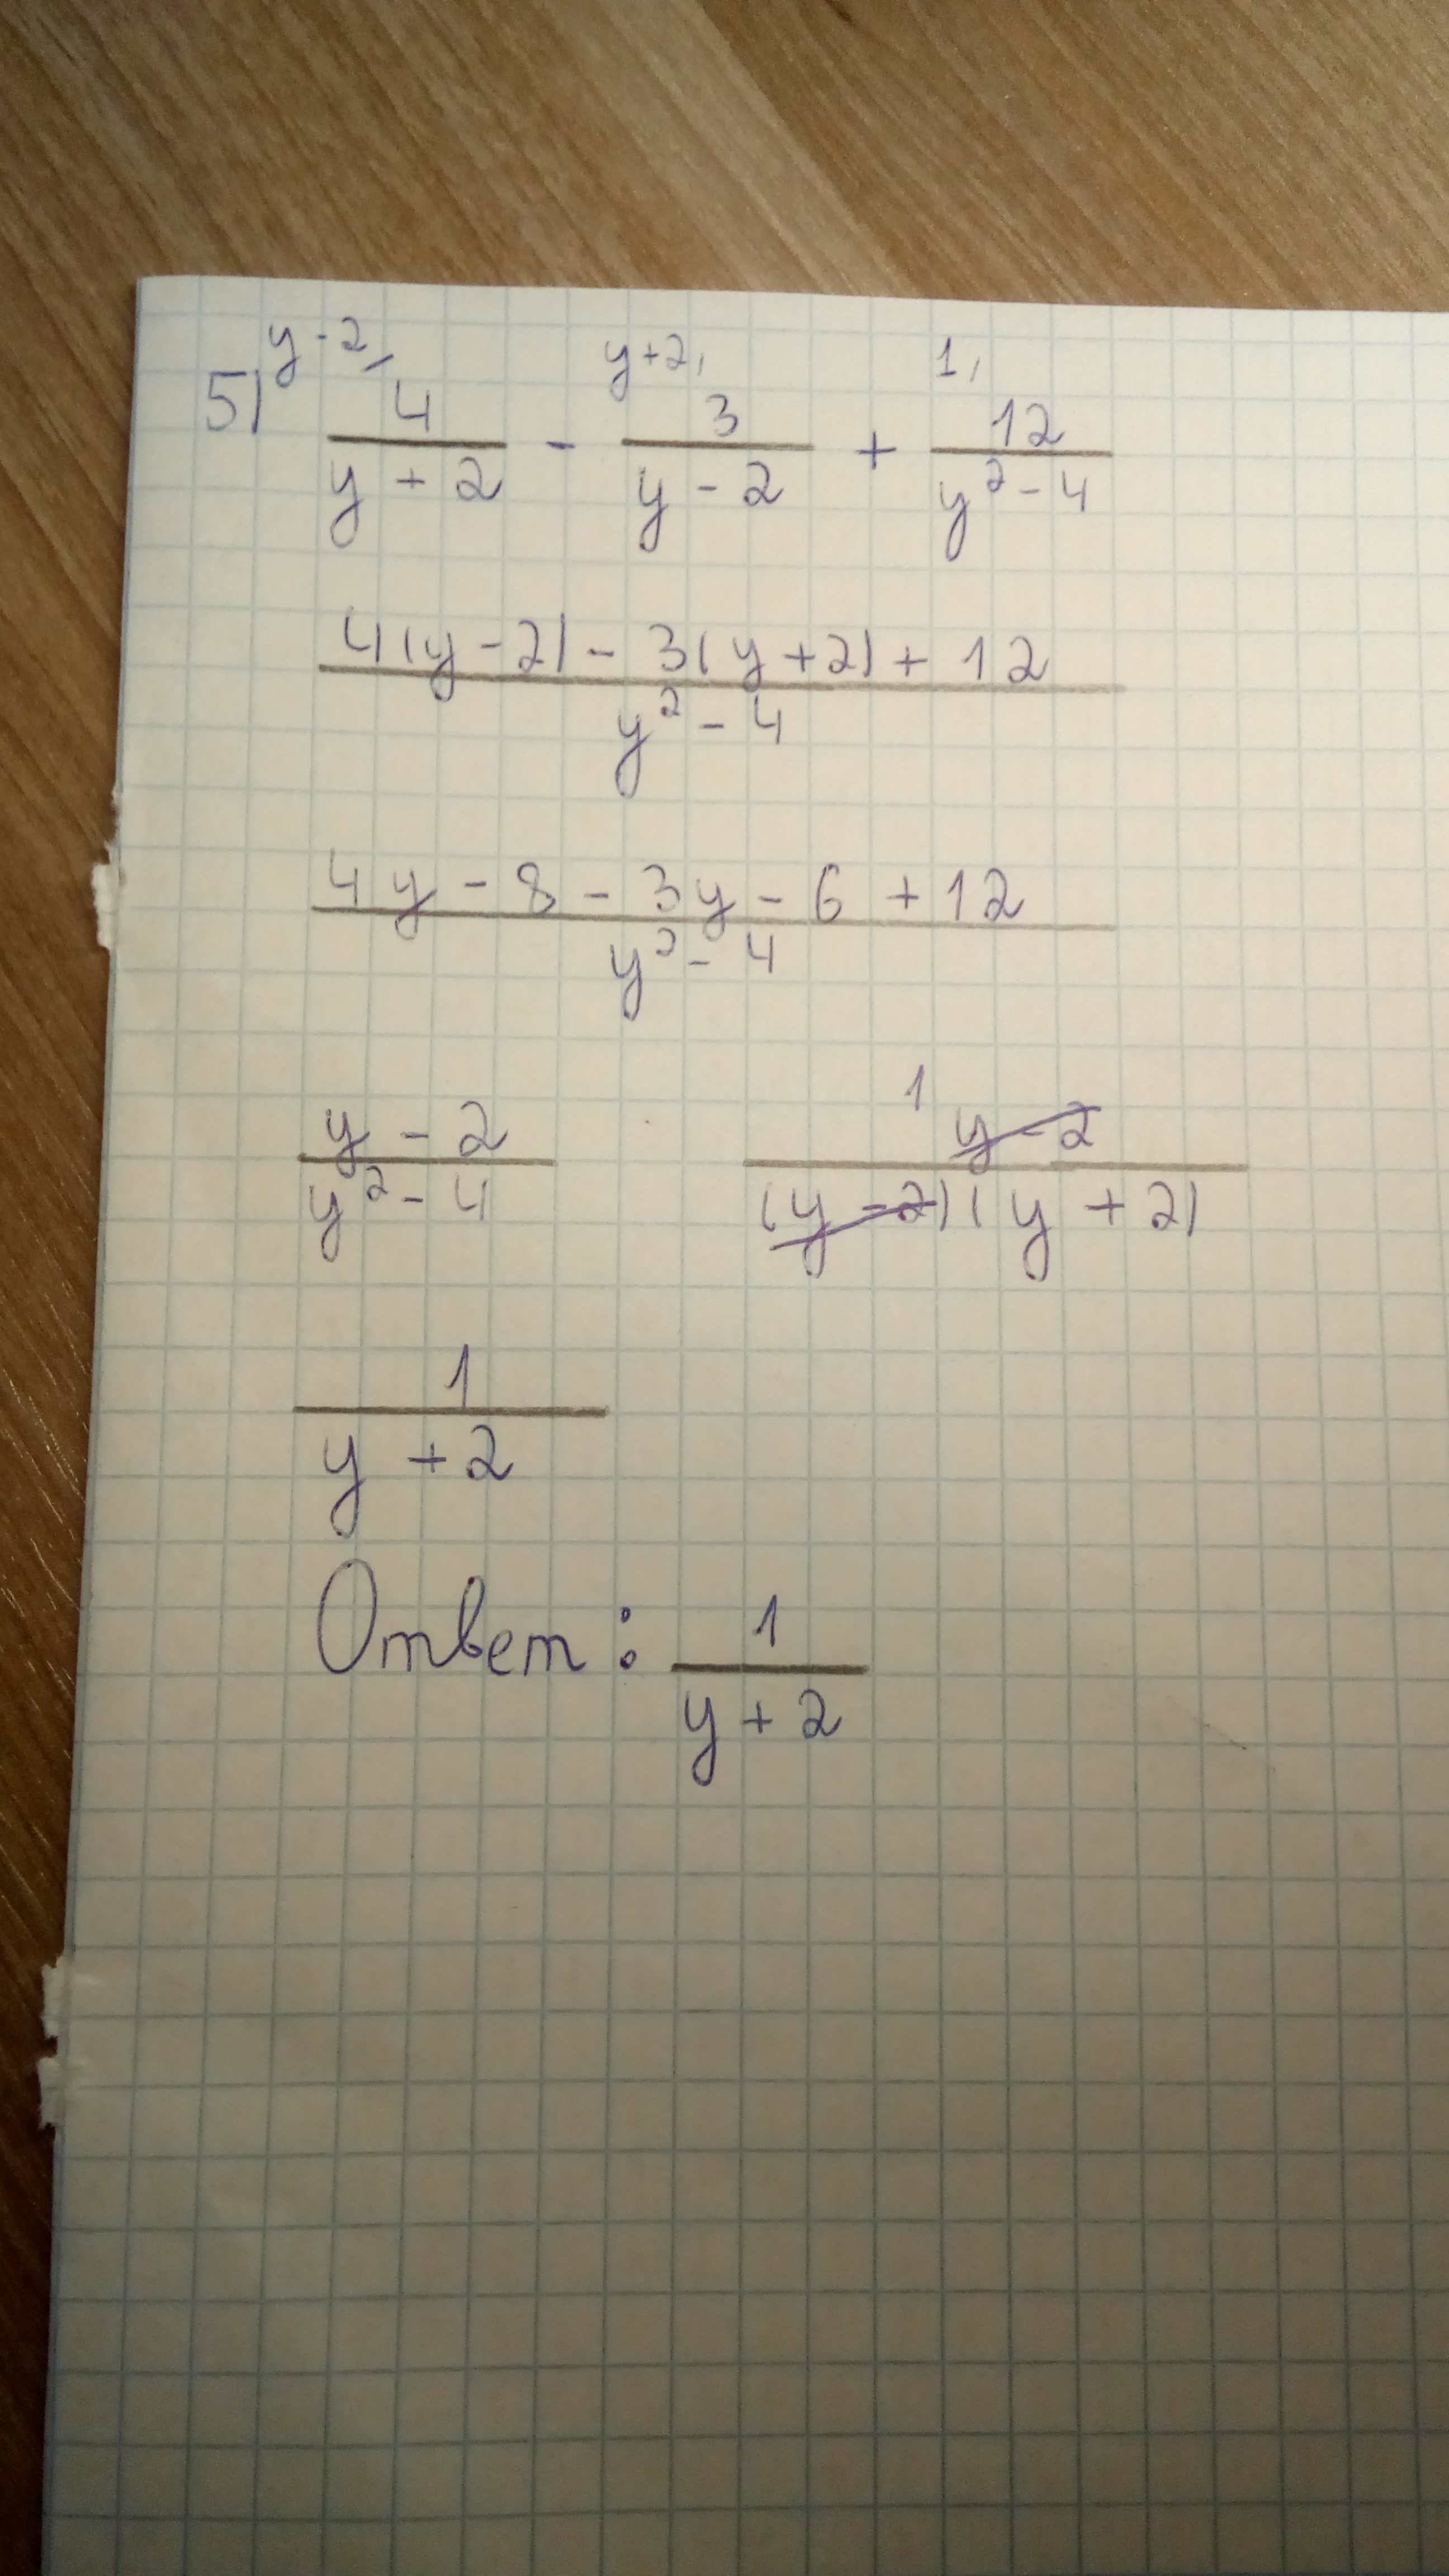 5) y-2/ 4/(y+2) - y+2/ 3/(y-2) + 1/ 12/(y²-4)
(4(y-2)-3(y+2)+12)/(y²-4)
(4y-8-3y-6+12)/(y²-4)
(y-2)/(y²-4) 1 (y-2)/((y-2)(y+2))
1/(y+2)
Ответ: 1/(y+2)